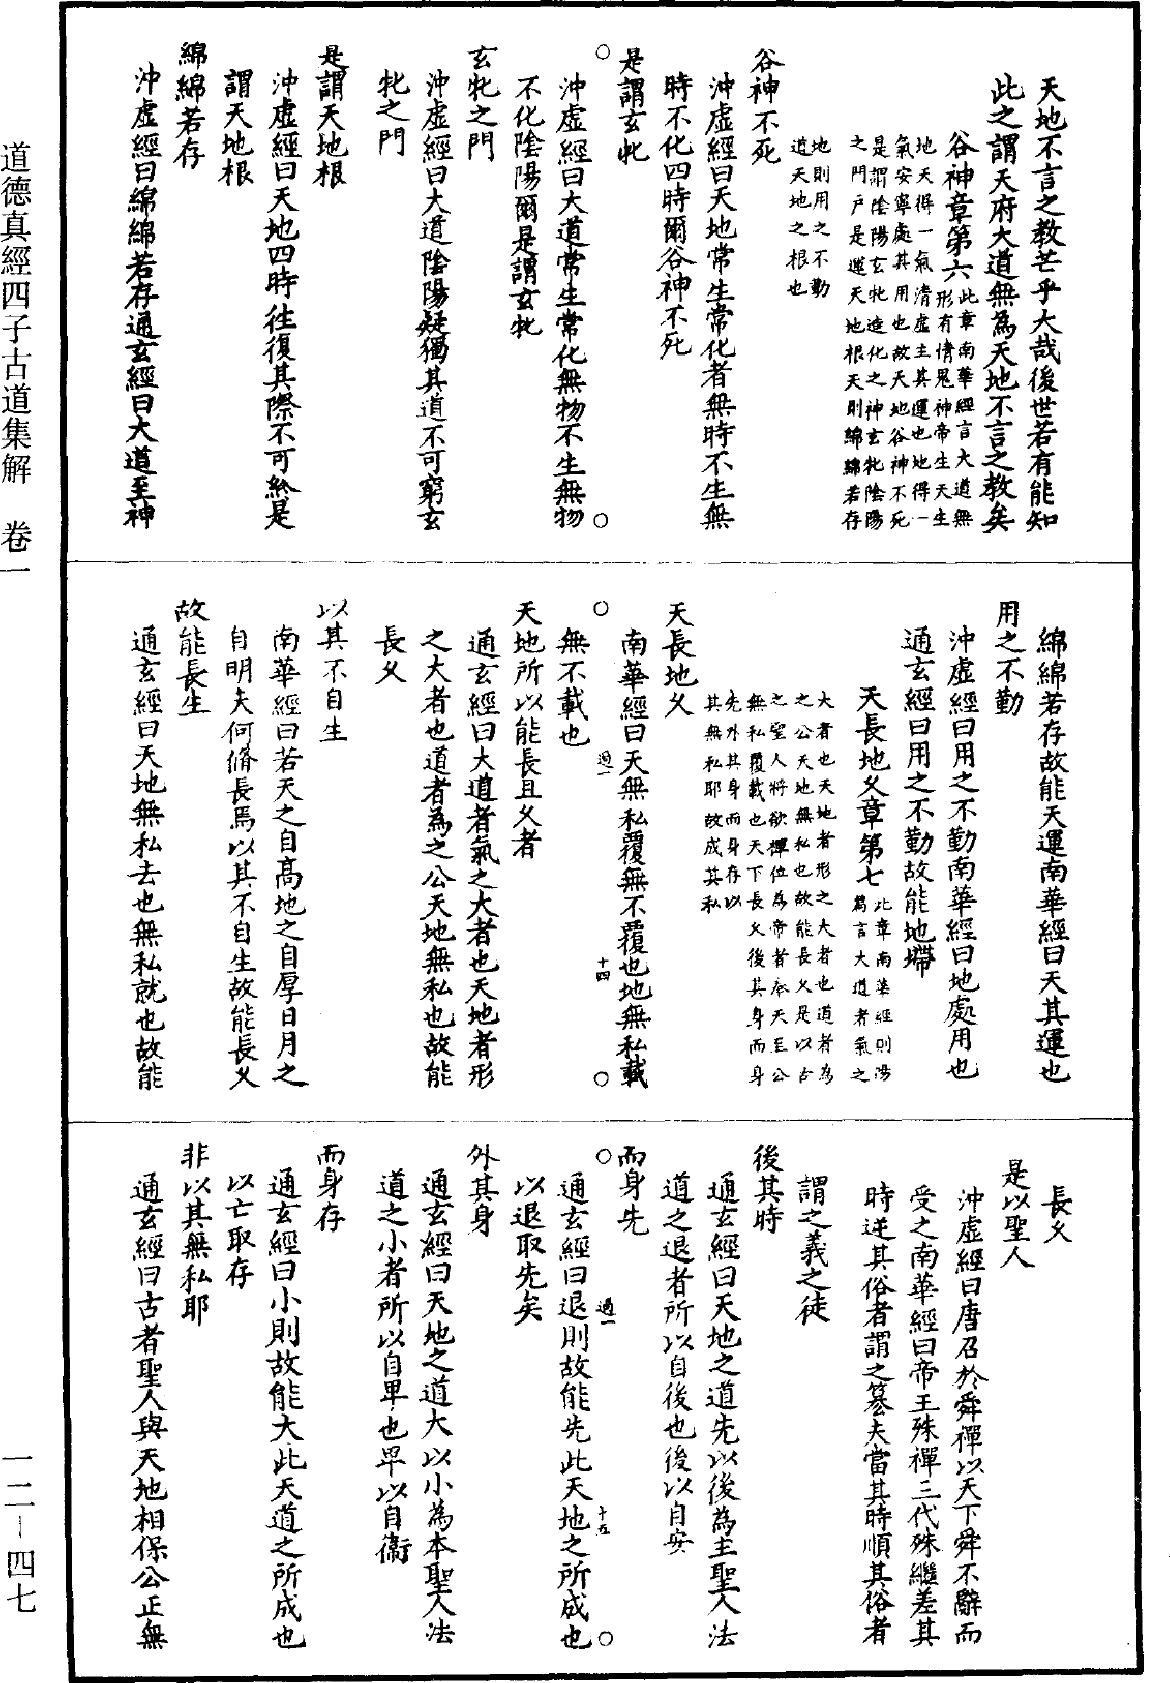 道德真經四子古道集解　卷一
一二－四七
天地不言之教芒乎大哉後世若有能知
此之謂天府大道無為天地不言之教矣
谷神章第六
此章南華經言大道無
形有情鬼神帝生天生
地天得一氣清虛主其運也地得一
氣安寧處其用也故天地谷神不死
是謂陰陽玄牝造化之神玄牝陰陽
之門戶是運天地根天則綿綿若存
地則用之不勤
道天地之根也
谷神不死
沖虛經曰天地常生常化者無時不生無
時不化四時爾谷神不死
是謂玄牝
沖虛經曰大道常生常化無物不生無物
不化陰陽爾是謂玄牝
玄牝之門
沖虛經曰大道陰陽疑獨其道不可窮玄
牝之門
是謂天地根
沖虛經曰天地四時往復其際不可終是
謂天地根
綿綿若存
沖虛經曰綿綿若存通玄經曰大道至神
綿綿若存故能天運南華經曰天其運也
用之不勤
沖虛經曰用之不勤南華經曰地處用也
通玄經曰用之不勤故能地墆
天長地久章第七
此章南華經則陽
篇言大道者氣之
大者也天地者形之大者也道者為
之公天地無私也故能長久是以古
之聖人將欲禪位為帝者奉天至公
無私覆載也天下長久後其身而身
先外其身而身存以
其無私耶故成其私
天長地久
南華經曰天無私覆無不覆也地無私載
無不載也
過一
十四
天地所以能長且久者
通玄經曰大道者氣之大者也天地者形
之大者也道者為之公天地無私也故能
長久
以其不自生
南華經曰若天之自高地之自厚日月之
自明夫何脩長焉以其不自生故能長久
故能長生
通玄經曰天地無私去也無私就也故能
長久
是以聖人
沖虛經曰唐召於舜禪以天下舜不辭而
受之南華經曰帝王殊禪三代殊繼差其
時逆其俗者謂之篡夫當其時順其俗者
謂之義之徒
後其時
通玄經曰天地之道先以後為主聖人法
道之退者所以自後也後以自安
而身先
通玄經曰退則故能先此天地之所成也
以退取先矣
過一
十五
外其身
通玄經曰天地之道大以小為本聖人法
道之小者所以自卑也卑以自衞
而身存
通玄經曰小則故能大此天道之所成也
以亡取存
非以其無私耶
通玄經曰古者聖人與天地相保公正無